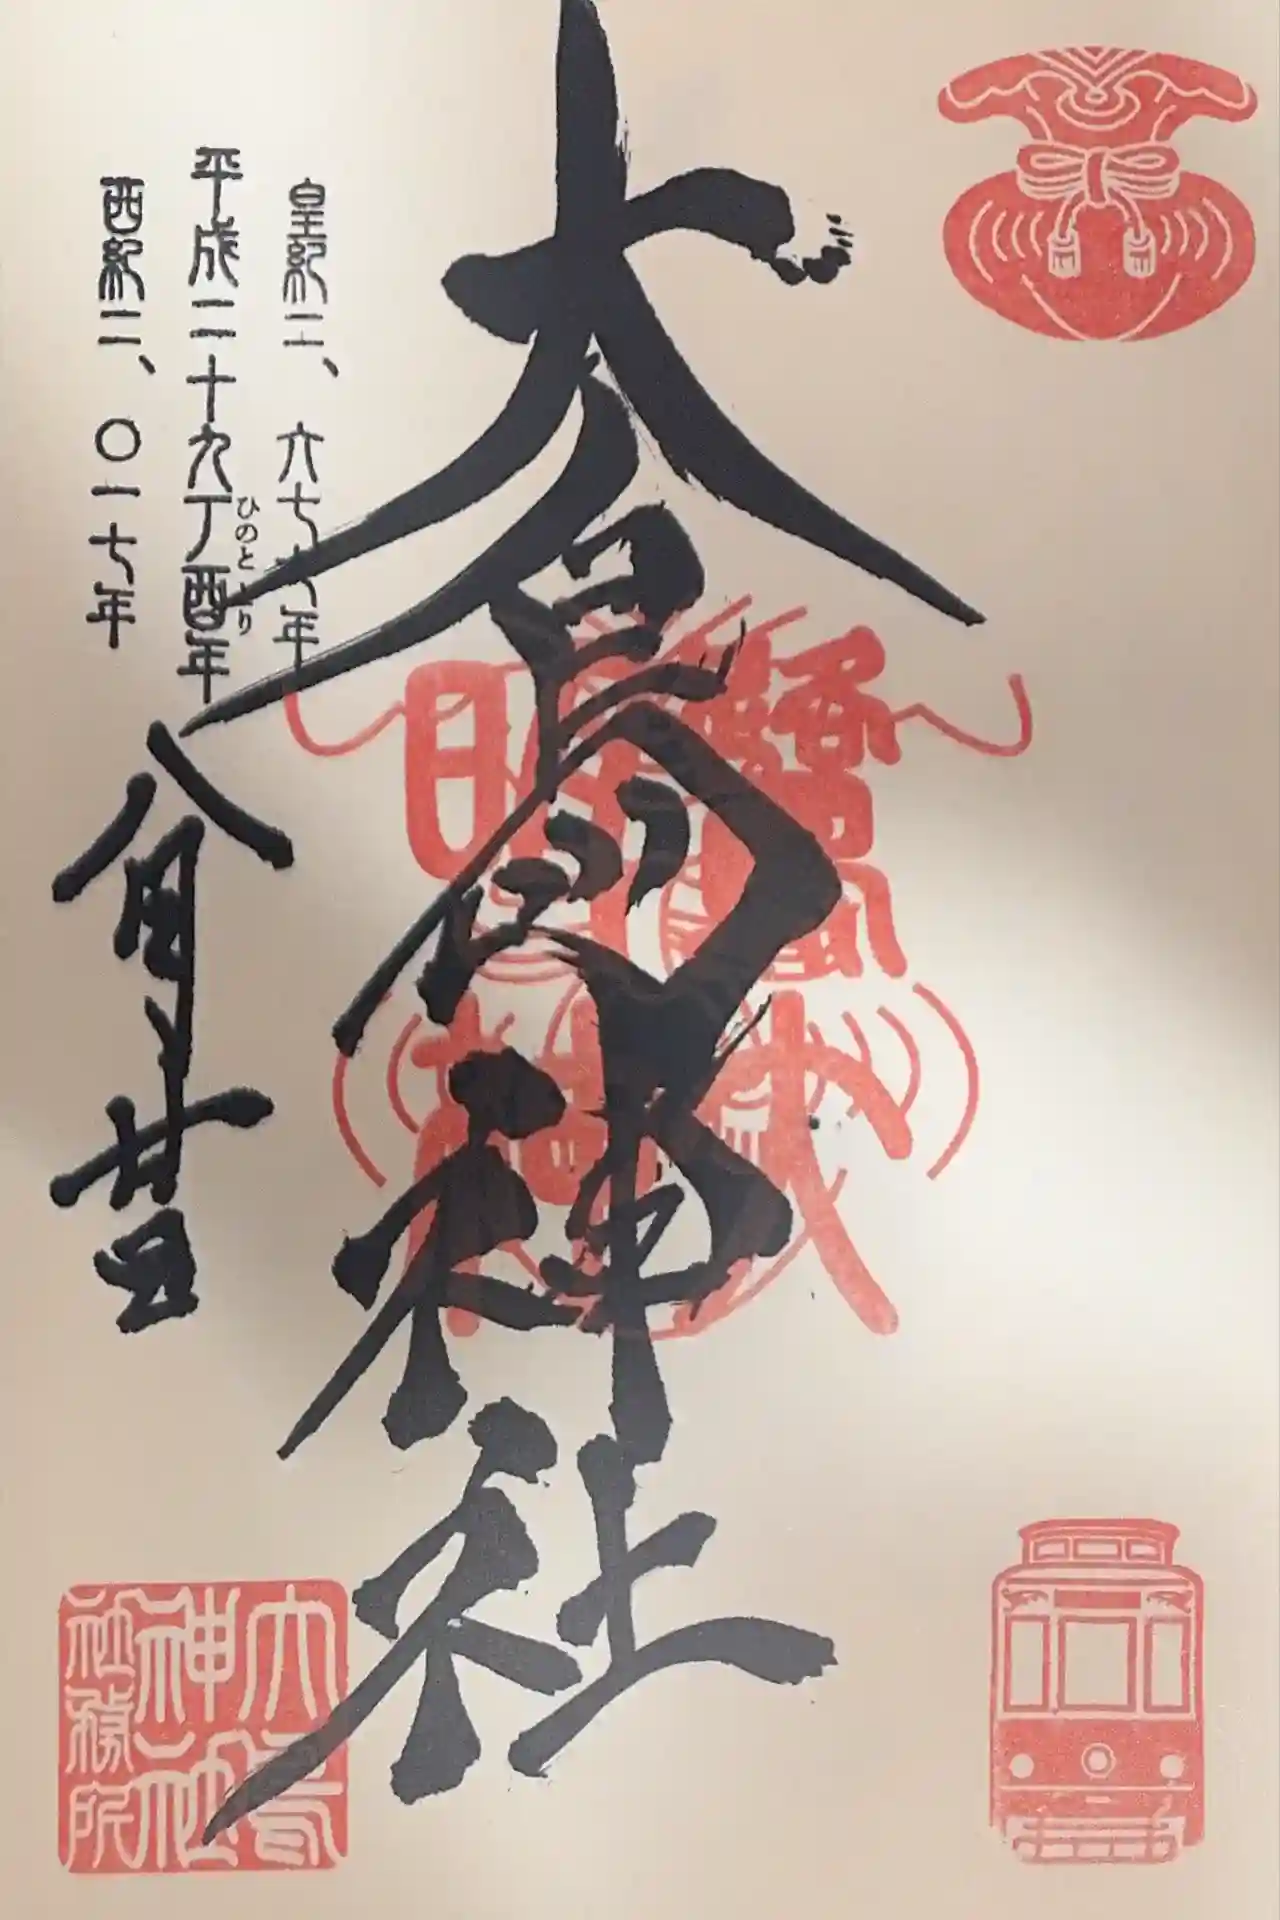 大鳥神社
皇紀二、六七七年
平成二十九丁酉年
ひのととり
西紀二、〇一七年
八月廿
大鳥
神社
社務所